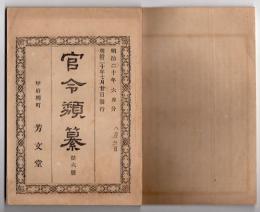 明治二十年六月分
明治二十年七月廿日發行
官令類纂
第六號
甲府柳町
芳文堂